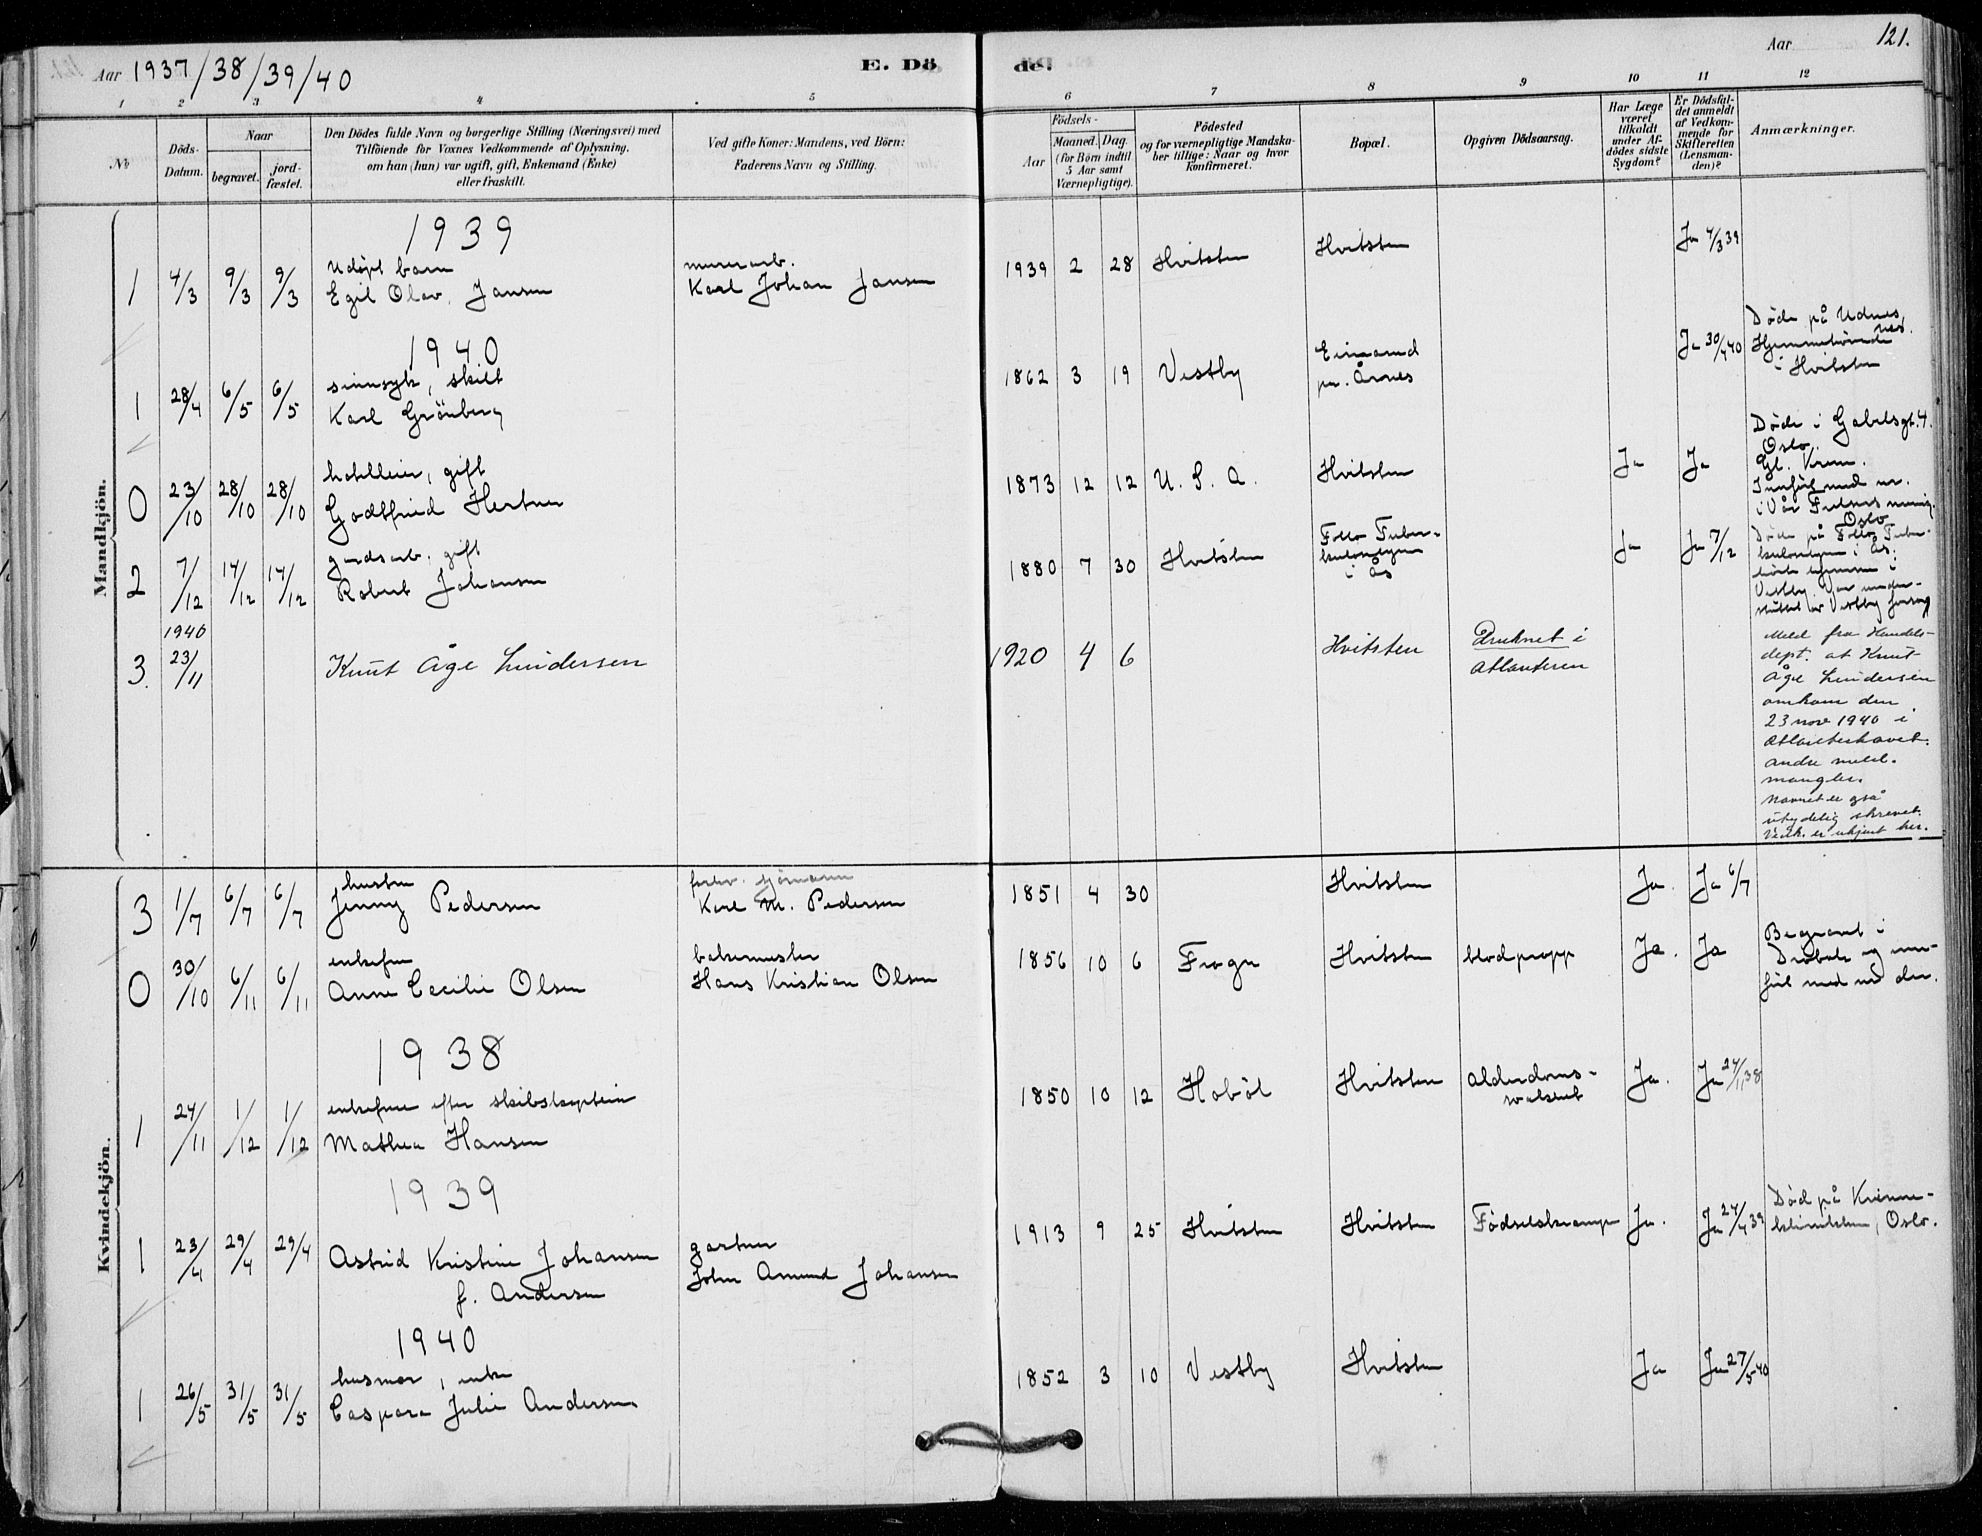 Aar 1937/38/39/40
E. Dö
de.
Aar
121.
1 2 3 4 5 6 7 8 9 10 11 12
No
Döds-
Datum.
Naar
begravet.
jord-
fæstet.
Den Dödes fulde Navn og borgerlige Stilling (Næringsvei) med
Tilföiende for Voxnes Vedkommende af Oplysning,
om han (hun) var ugift, gift, Enkemand (Enke)
eller fraskilt.
Ved gifte Koner: Mandens, ved Börn:
Faderens Navn og Stilling.
Födsels-
Aar
Maaned. Dag.
(for Börn indtil
5 Aar samt
Værnepligtige).
Födested
og for værnepligtige Mandska-
ber tillige: Naar og hvor
konfirmeret.
Bopæl.
Opgiven Dödsaarsag.
Har Læge
været
tilkaldt
under Af-
dödes sidste
Sygdom?
Er Dödsfal-
det anmeldt
af Vedkom-
mende for
Skifteretten
(Lensman-
den)?
Anmærkninger.
Mandkjön.
1939
1 4/3 9/3 9/3 udøpt barn
Egil Olav Jansen
murerarb.
Karl Johan Jansen
1939 2 28 Hvitsten Hvitsten Ja 4/3 39
1940
1 28/4 6/5 6/5 sinnsyk, skilt
Karl Grönberg
1862 3 19 Vestby
pr. Årnes
Ja 30/4 40
Døde på Udnes,
Hjemmehørende
i Hvitsten
0 23/10 28/10 28/10 hotelleier, gift
Godtfried Hertner
1873 12 12 U. S. A. Hvitsten Ja Ja
Døde i Gabelsgt. 4.
Oslo.
Gl. Krem.
Innført med nr.
i Vår Frelsers menig.
Oslo
2 7/12 14/12 14/12 gardsarb. gift
Robert Johansen
1880 7 30 Hvitsten
Follo Tuber-
kulosehjem
i Ås
Ja Ja 7/12
Døde på Follo Tuber-
kulosehjem i Ås.
hørte hjemme i
Vestby. Var under-
støttet av Vestby forsorg
1940
3. 23/11 Knut Åge Lindersen
1920 4 6 Hvitsten
Druknet i
Atlanteren
Meld. fra Handels-
dept. at Knut
Åge Lindersen
omkom den
23 nov 1940 i
Atlanterhavet.
Andre meld.
mangler.
Navnet er også
utydelig skrevet.
Vedk. er ukjent her.
Kvindekjön.
3 1/7 6/7 6/7 hustru
Jenny Pedersen
forhv. sjömann
Karl M. Pedersen
1851 4 30 Hvitsten Ja. Ja 6/7
0 30/10 6/11 6/11 enkefru
Anne Cecilie Olsen
bakermester
Hans Kristian Olsen
1856 10 6 Frogn Hvitsten blodpropp Ja. Ja
Begravet i
Drøbak og inn-
ført med nr der.
1938
1 24/11 1/12 1/12 enkefrue efter skibskaptein
Mathea Hansen
1850 10 12 Hobøl Hvitsten
Alderdoms-
svakhet
Ja. Ja 24/11 38
1939
1 23/4 29/4 29/4 Astrid Kristine Johansen
f. Andersen
gartner
John Amund Johansen
1913 9 25 Hvitsten Hvitsten Födselskrampe Ja. Ja 24/4 39
Död på Kvinne-
klinikken, Oslo.
1940
1 26/5 31/5 31/5 husmor, enke
Caspara Julie Andersen
1852 3 10 Vestby Hvitsten Ja Ja 27/5 40